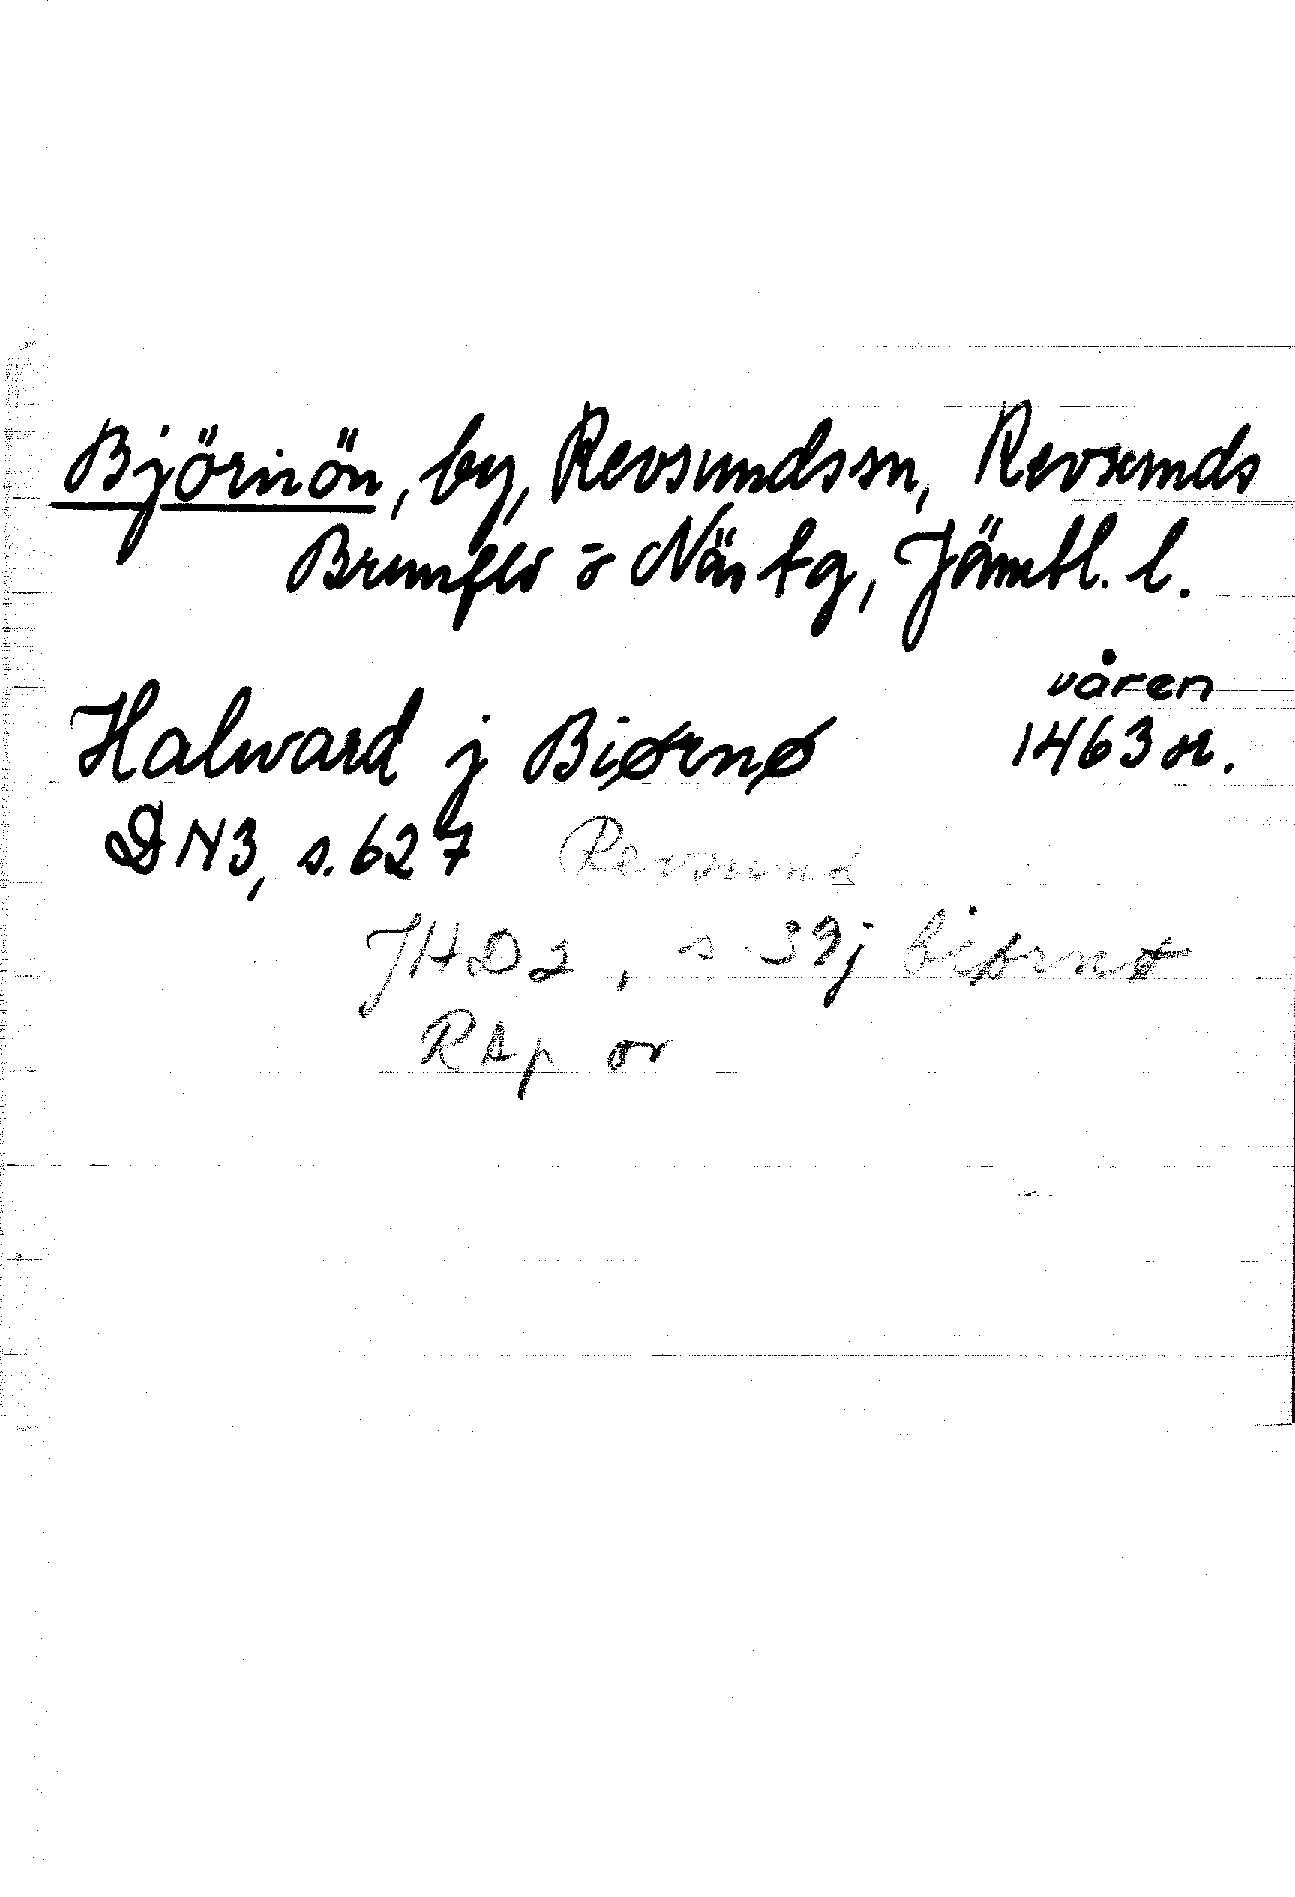 Björnön, by, Revsundssn, Revsunds
Brunflo o Näs tg, Jämtl. l.
våren
Halward j Biørnø 1463 or.
DN3, s. 627 Revsund
JHD2, s 39 j biørnø
RAp or